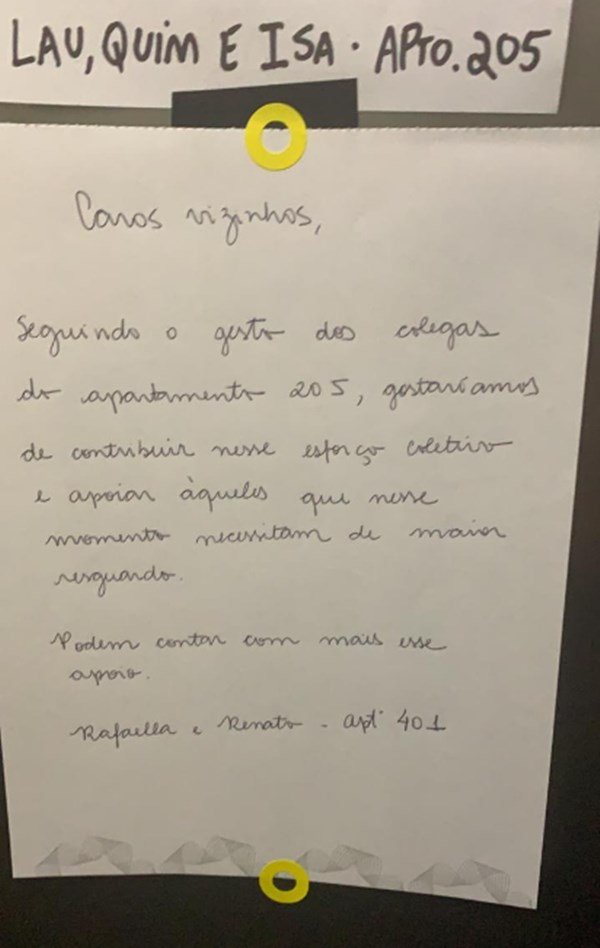 LAU, QUIM E ISA · APTO. 205
Caros vizinhos,
Seguindo o gesto dos colegas
do apartamento 205, gostaríamos
de contribuir nesse esforço coletivo
e apoiar àqueles que nesse
momento necessitam de maior
resguardo.
Podem contar com mais esse
apoio.
Rafaella e Renato - apt 401